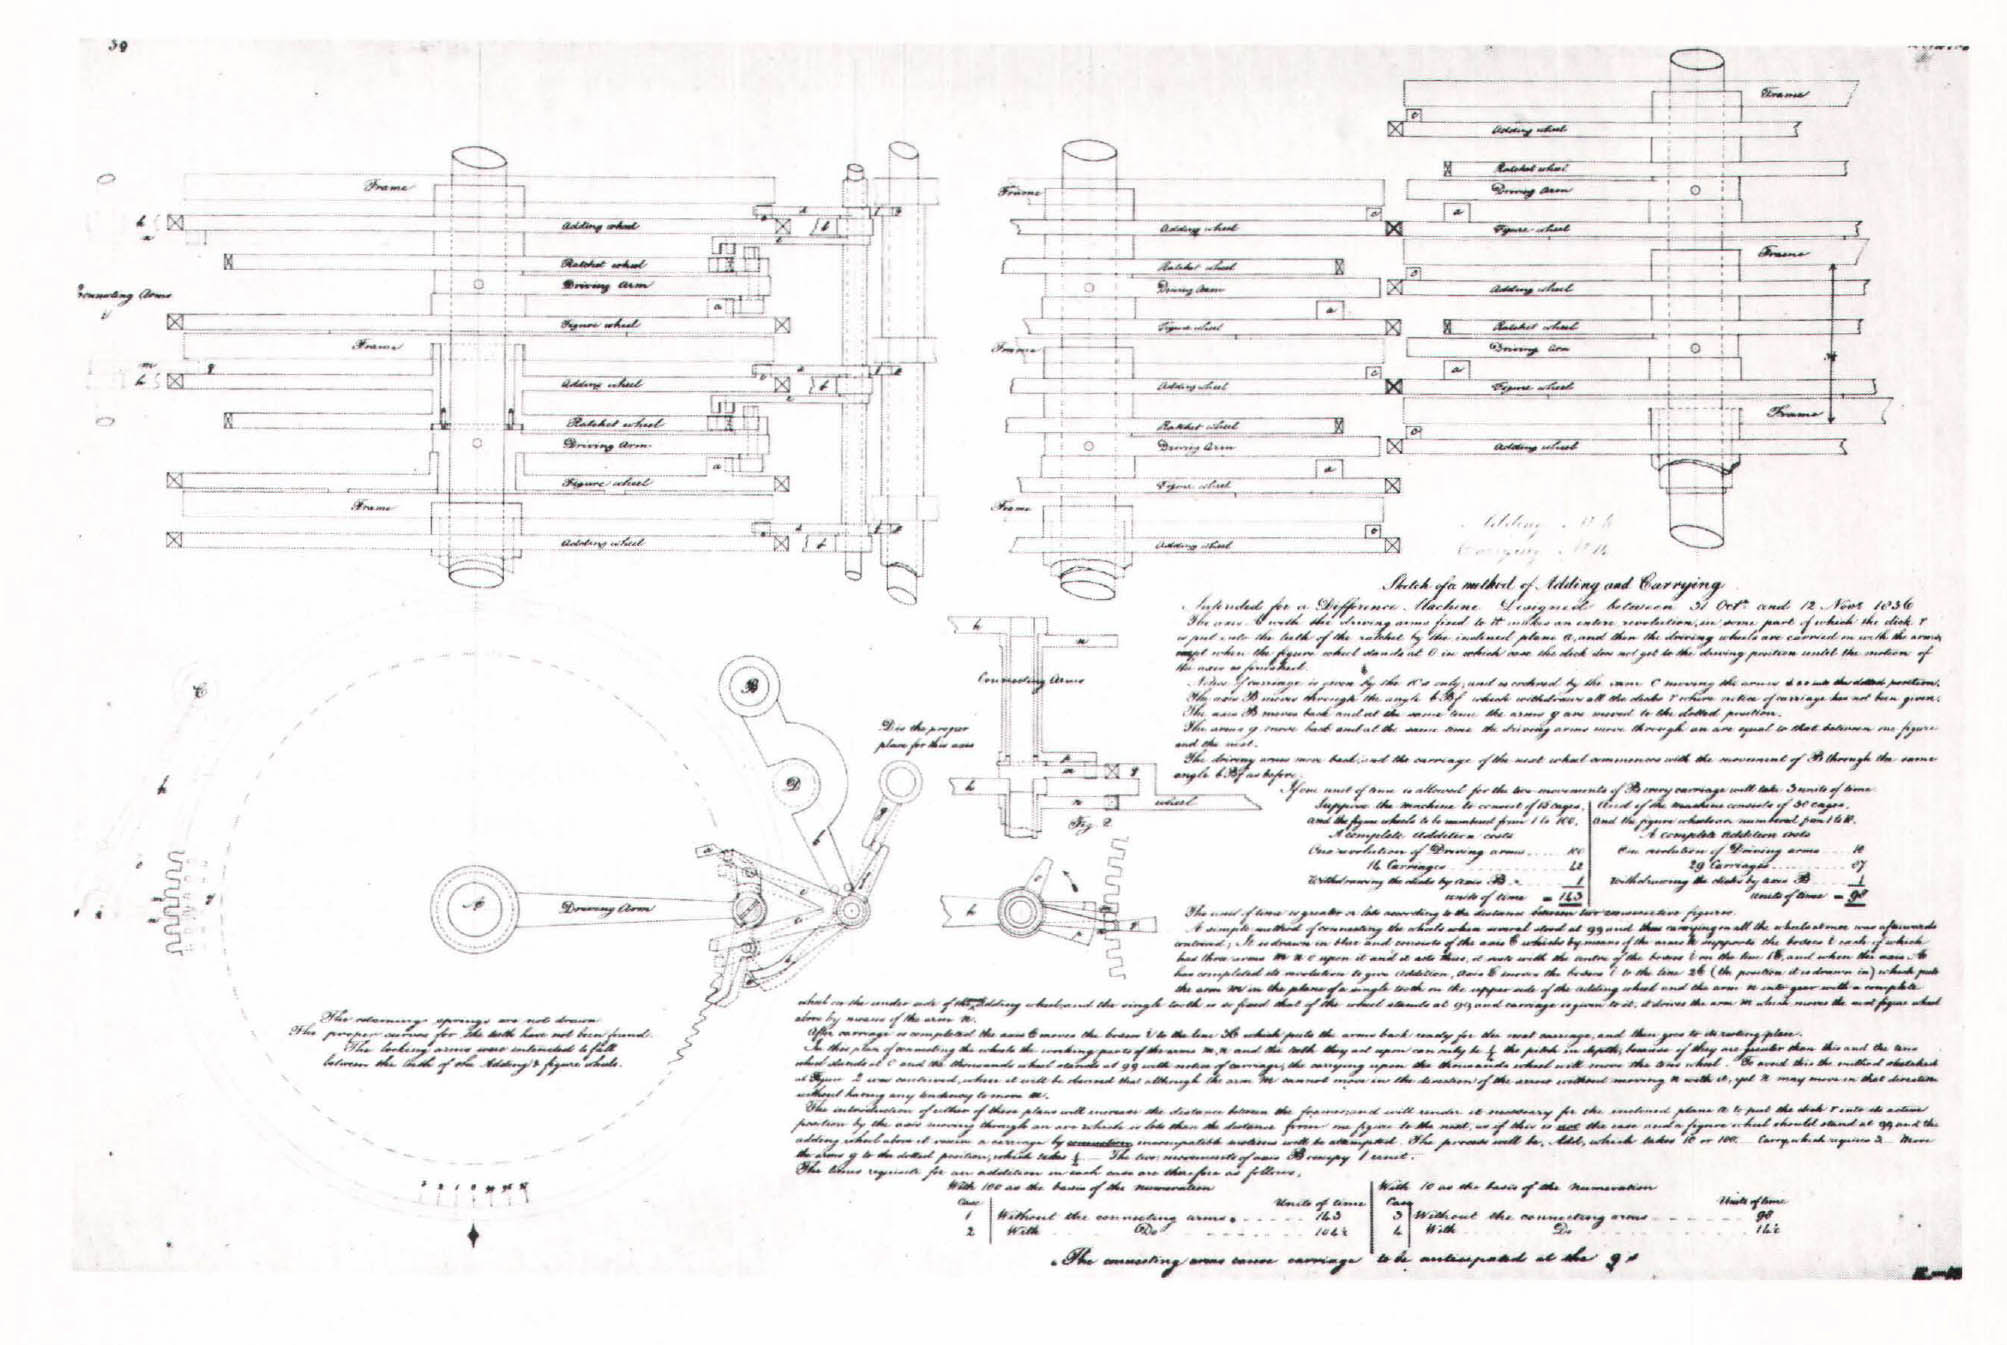 39
Frame
Adding wheel
Ratchet wheel
Driving Arm
a
Figure wheel
Frame
Adding wheel
Ratchet wheel
Driving Arm
a
Figure wheel
Frame
Adding wheel
Connecting Arms
Frame
Adding wheel
Ratchet wheel
Driving Arm
a
Figure wheel
Frame
Adding wheel
Ratchet wheel
Driving Arm
a
Figure wheel
Frame
Adding wheel
Frame
Adding wheel
Ratchet wheel
Driving Arm
a
Figure wheel
Frame
Adding wheel
Ratchet wheel
Driving Arm
a
Figure wheel
Frame
Adding wheel
Adding
Carrying
Sketch of a method of Adding and Carrying
Intended for a Difference Machine Designed between 31 Octr. and 12 Novr 1836
The axis A with the driving arms fixed to it makes an entire revolution, in some part of which the dick r
is put into the teeth of the ratchet by the inclined plane a, and then the driving wheels are carried on with the arms
except when the figure wheel stands at 0 in which case the dick does not get to the driving position until the motion of
the axis is finished.
Notice of carriage is given by the 10s only, and is ordered by the cam c moving the arms to the dotted position.
The axis B moves through the angle b B f which withdraws all the dicks r where notice of carriage has not been given.
The axis B moves back and at the same time the arms g are moved to the dotted position.
The arms g move back and at the same time the driving arms move through an arc equal to that between one figure
and the next.
The driving arms move back, and the carriage of the next wheel commences with the movement of B through the same
angle b B f as before.
If one unit of time is allowed for the two movements of B every carriage will take 3 units of time.
Suppose the machine to consist of 15 cages,
and the figure wheels to be numbered from 1 to 100,
A complete Addition costs
One revolution of Driving arms 100
14 Carriages 42
Withdrawing the dicks by axis B 1
Units of time = 143
And if the machine consists of 30 cages,
and the figure wheels are numbered from 1 to 10.
A complete Addition costs
One revolution of Driving arms 10
29 Carriages 87
Withdrawing the dicks by axis B 1
Units of time = 98
The unit of time is greater or less according to the distance between two consecutive figures.
A simple method of connecting the wheels when several stood at 99 and thus carrying on all the wheels at once was afterwards
contrived; It is drawn in blue and consists of the axis C which by means of the arms h supports the bosses i each of which
has three arms m n o upon it and it acts thus, it rests with the centre of the bosses i on the line 1C, and when the axis A
has completed its revolution to give Addition, Axis C moves the bosses i to the line 2C (the position it is drawn in) which puts
the arm m in the plane of a single tooth on the upper side of the adding wheel and the arm n into gear with a complete
wheel on the under side of the Adding wheel, and the single tooth is so fixed that if the wheel stands at 99 and carriage is given to it, it drives the arm m which moves the next figure wheel
above by means of the arm n.
After carriage is completed the axis C moves the bosses i to the line 3C which puts the arms back ready for the next carriage, and then goes to its resting place.
In this plan of connecting the wheels the working parts of the arms m, n and the teeth they act upon can only be ½ the pitch in depth, because if they are greater than this and the tens
wheel stands at 0 and the thousands wheel stands at 99 with notice of carriage, the carrying upon the thousands wheel will move the tens wheel. To avoid this the method sketched
at Figure 2 was contrived, where it will be observed that although the arm m cannot move in the direction of the arrow without moving n with it, yet n may move in that direction
without having any tendency to move m.
The introduction of either of these plans will increase the distance between the frames, and will render it necessary for the inclined plane a to put the dick r into its active
position by the axis moving through an arc which is less than the distance from one figure to the next, as if this is not the case and a figure wheel should stand at 99 and the
adding wheel above it receive a carriage by connection incompatible motions will be attempted. The process will be, Add, which takes 10 or 100. Carry, which requires 3. Move
the arms g to the dotted position, which takes ½. The two movements of axis B occupy 1 unit.
The times requisite for an addition in each case are therefore as follows,
With 100 as the basis of the numeration
Case Units of time
1 Without the connecting arms 143
2 With Do 104½
With 10 as the basis of the numeration
Case Units of time
3 Without the connecting arms 98
4 With Do 14½
The connecting arms cause carriage to be anticipated at the 9s
B
D
D is the proper
place for this axis
C
h
A
Driving Arm
Connecting Arms
wheel
Fig 2
The returning springs are not drawn
The proper curves for the teeth have not been found.
The locking arms were intended to fall
between the teeth of the Adding & figure wheels.